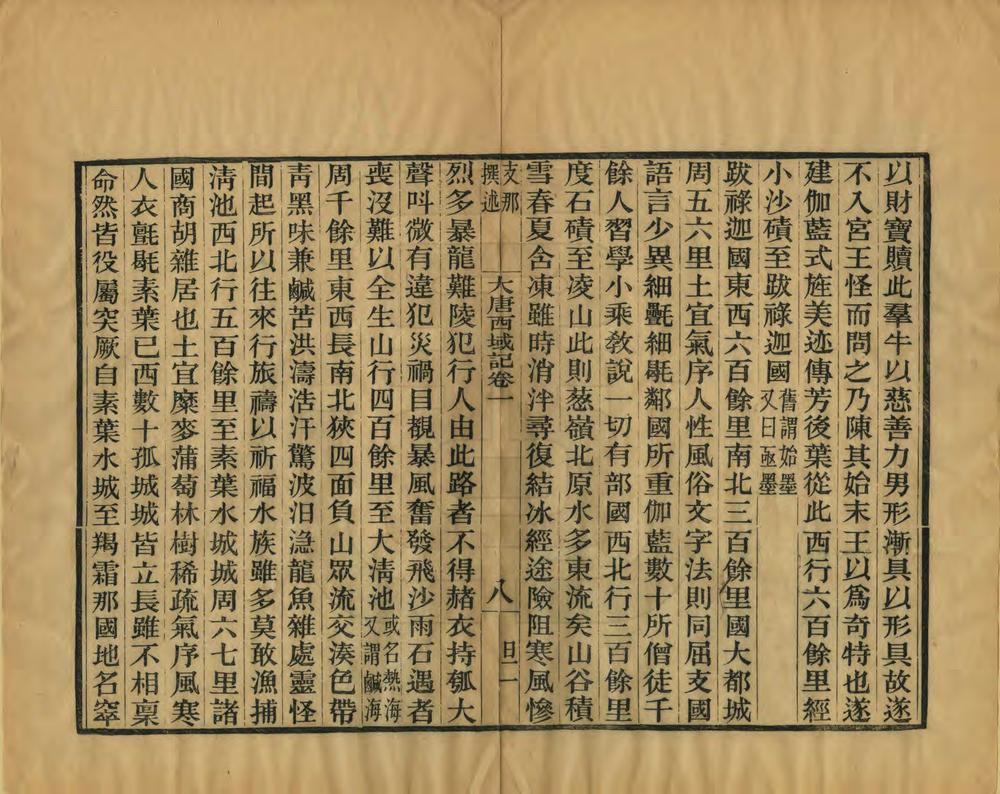 以財寶贖此羣牛以慈善力男形漸具以形具故遂
不入宮王怪而問之乃陳其始末王以爲奇特也遂
建伽藍式旌美迹傳芳後葉從此西行六百餘里經
小沙磧至跋祿迦國舊謂始墨又曰亟墨
跋祿迦國東西六百餘里南北三百餘里國大都城
周五六里土宜氣序人性風俗文字法則同屈支國
語言少異細㲲細毼鄰國所重伽藍數十所僧徒千
餘人習學小乘敎說一切有部國西北行三百餘里
度石磧至凌山此則葱嶺北原水多東流矣山谷積
雪春夏含凍雖時消泮尋復結冰經途險阻寒風慘
支那撰述 大唐西域記卷一 八 日一
烈多暴龍難陵犯行人由此路者不得赭衣持瓠大
聲叫微有違犯災禍目覩暴風奮發飛沙雨石遇者
喪沒難以全生山行四百餘里至大淸池或名熱海又謂鹹海
周千餘里東西長南北狹四面負山眾流交湊色帶
靑黑味兼鹹苦洪濤浩汗驚波汨㴔龍魚雜處靈怪
間起所以往來行旅禱以祈福水族雖多莫敢漁捕
淸池西北行五百餘里至素葉水城城周六七里諸
國商胡雜居也土宜糜麥蒲萄林樹稀疏氣序風寒
人衣氈毼素葉已西數十孤城城皆立長雖不相稟
命然皆役屬突厥自素葉水城至羯霜那國地名窣